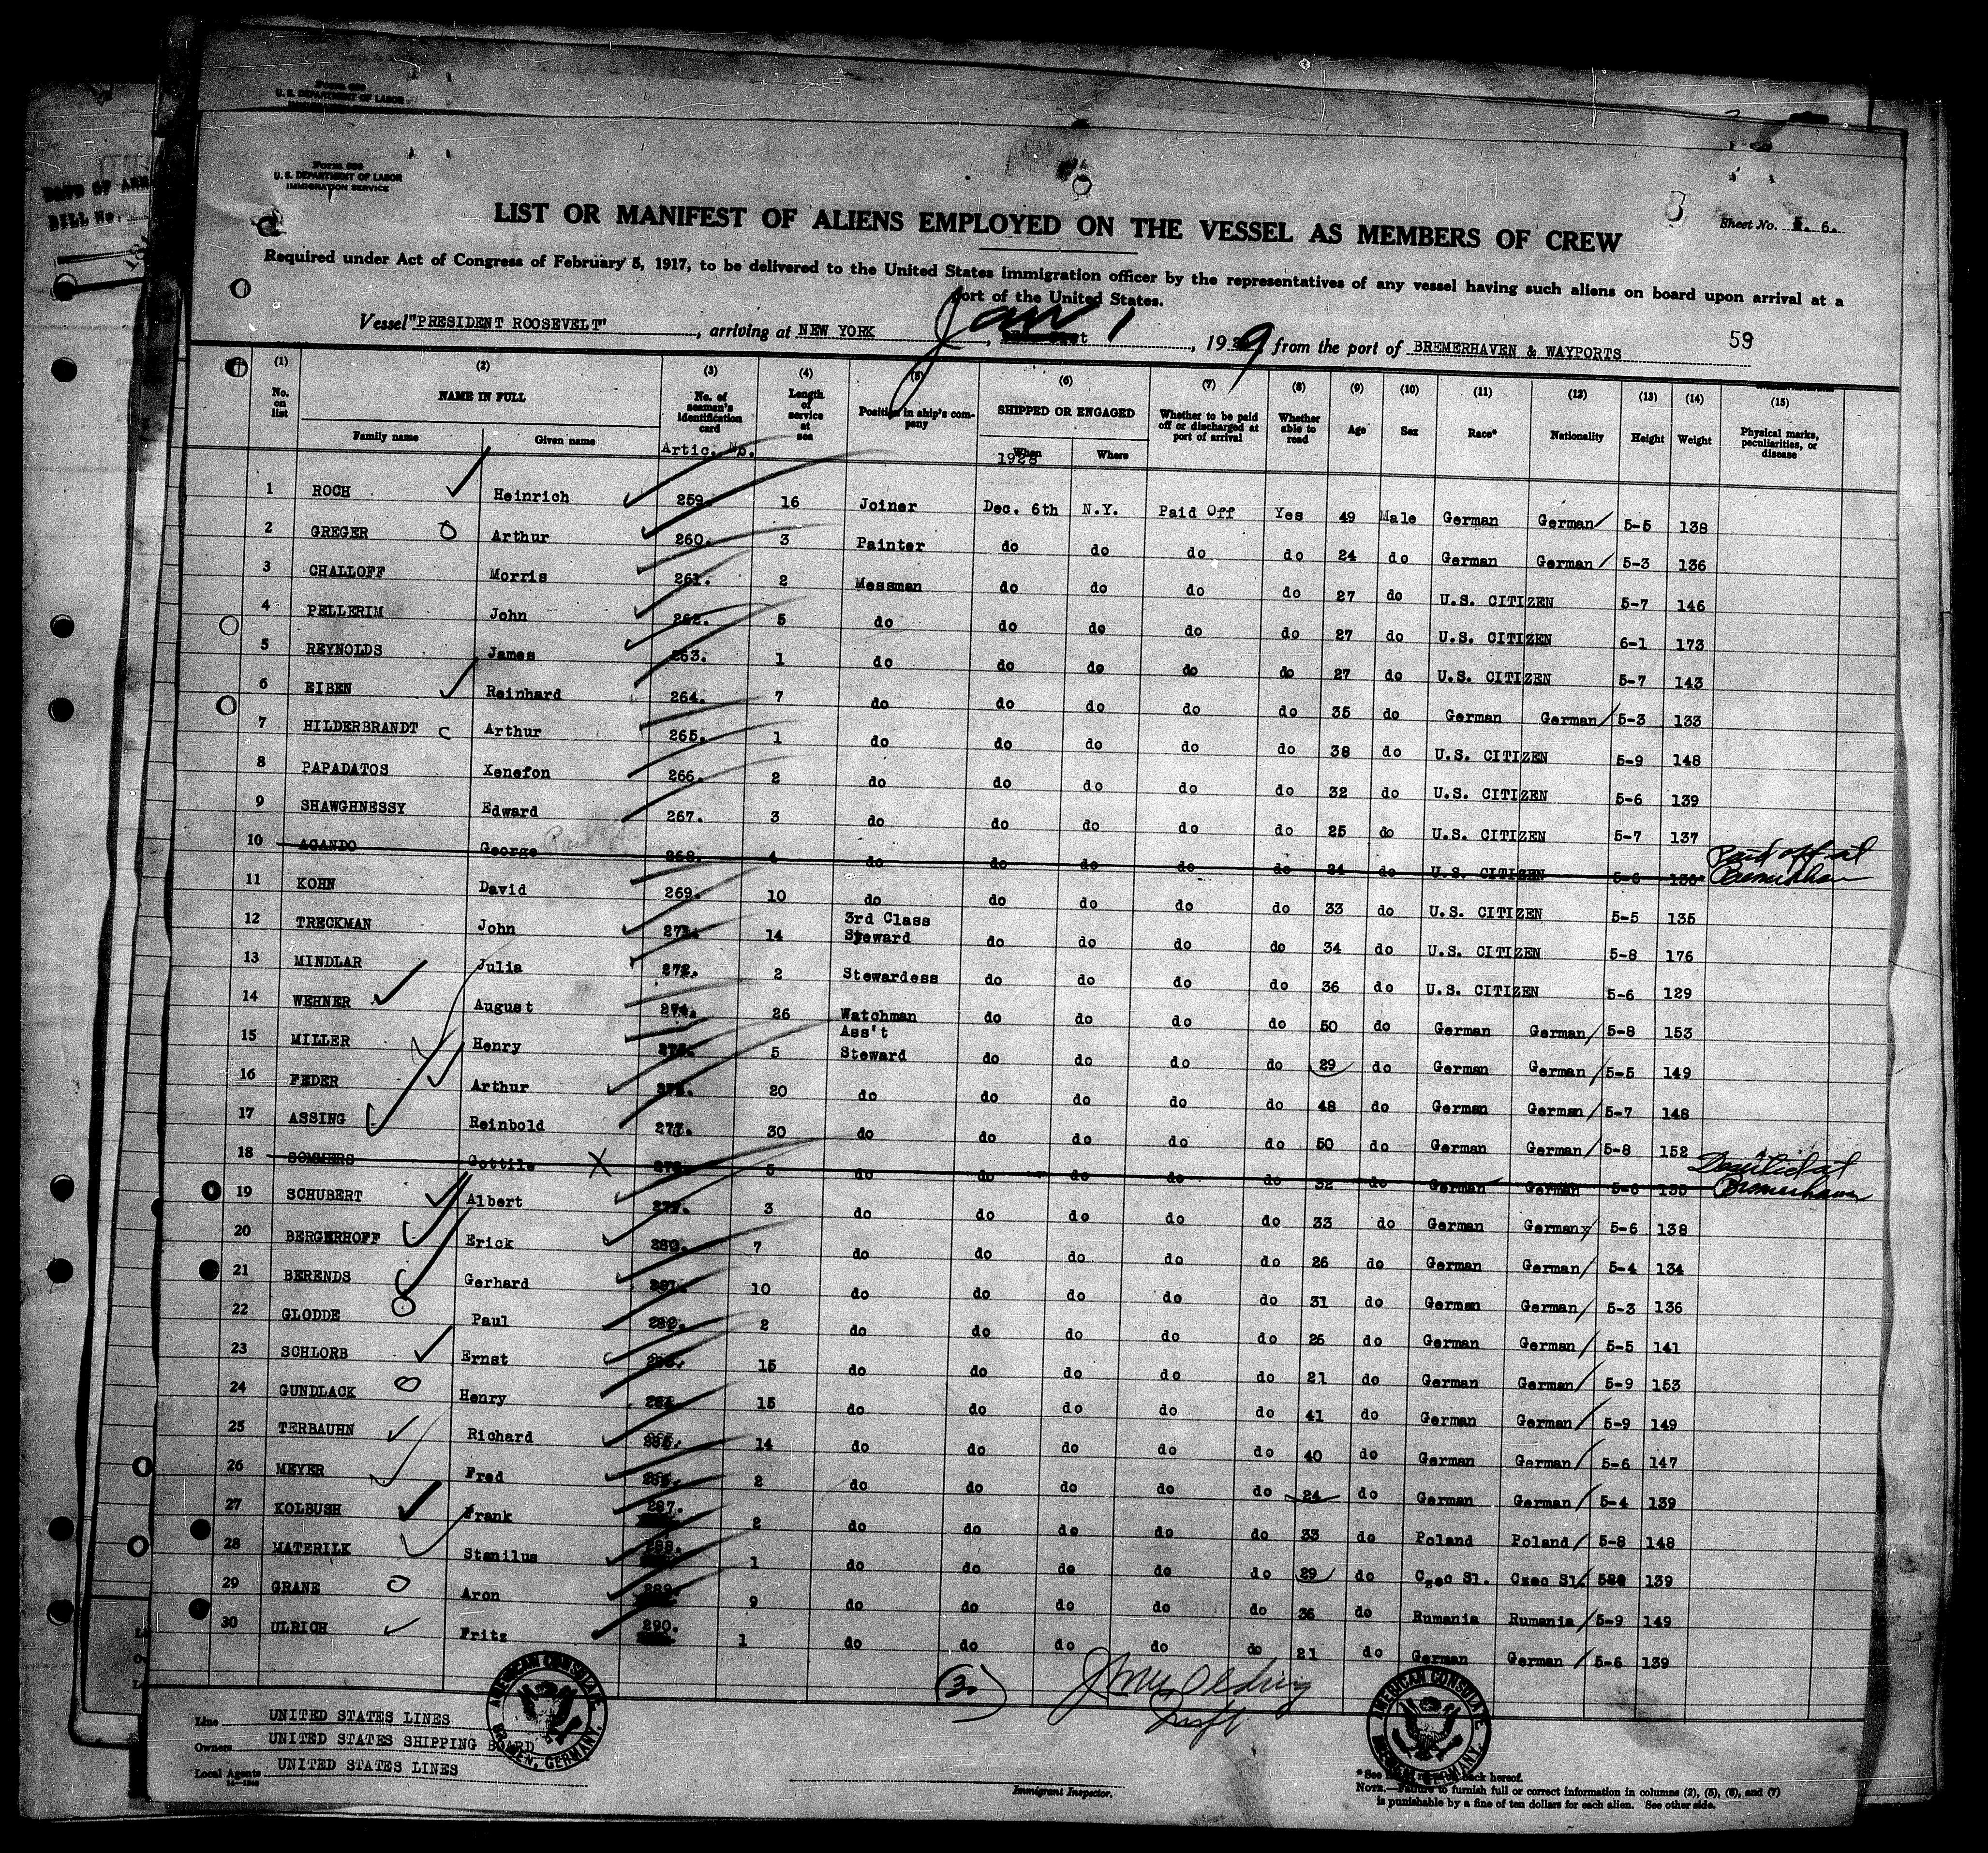 Form 680
U. S. DEPARTMENT OF LABOR
IMMIGRATION SERVICE
LIST OR MANIFEST OF ALIENS EMPLOYED ON THE VESSEL AS MEMBERS OF CREW
Sheet No. 6.
Required under Act of Congress of February 5, 1917, to be delivered to the United States immigration officer by the representatives of any vessel having such aliens on board upon arrival at a
port of the United States.
Vessel "PRESIDENT ROOSEVELT", arriving at NEW YORK, Jan 1, 1929 from the port of BREMERHAVEN & WAYPORTS
59
(1) (2) (3) (4) (5) (6) (7) (8) (9) (10) (11) (12) (13) (14) (15)
No. on list NAME IN FULL Family name Given name No. of seaman's identification card Artic. No. Length of service at sea Position in ship's company SHIPPED OR ENGAGED When 1928 Where Whether to be paid off or discharged at port of arrival Whether able to read Age Sex Race* Nationality Height Weight Physical marks, peculiarities, or disease
1 ROCH Heinrich 259. 16 Joiner Dec. 6th N.Y. Paid Off Yes 49 Male German German 5-5 138
2 GREGER Arthur 260. 3 Painter do do do do 24 do German German 5-3 136
3 CHALLOFF Morris 261. 2 Messman do do do do 27 do U.S. CITIZEN 5-7 146
4 PELLERIM John 262. 5 do do do do do 27 do U.S. CITIZEN 6-1 173
5 REYNOLDS James 263. 1 do do do do do 27 do U.S. CITIZEN 5-7 143
6 EIBEN Reinhard 264. 7 do do do do do 35 do German German 5-3 133
7 HILDERBRANDT Arthur 265. 1 do do do do do 38 do U.S. CITIZEN 5-9 148
8 PAPADATOS Xenefon 266. 2 do do do do do 32 do U.S. CITIZEN 5-6 139
9 SHAWGHNESSY Edward 267. 3 do do do do do 25 do U.S. CITIZEN 5-7 137
10 AGANDO George 268. 4 do do do do do 24 do U.S. CITIZEN 5-6 Paid off at Bremerhaven
11 KOHN David 269. 10 do do do do do 33 do U.S. CITIZEN 5-5 135
12 TRECKMAN John 14 3rd Class Steward do do do do 34 do U.S. CITIZEN 5-8 176
13 MINDLAR Julia 272. 2 Stewardess do do do do 36 do U.S. CITIZEN 5-6 129
14 WEHNER August 274. 26 Watchman do do do do 50 do German German 5-8 153
15 MILLER Henry 275. 5 Ass't Steward do do do do 29 do German German 5-5 149
16 FEDER Arthur 20 do do do do do 48 do German German 5-7 148
17 ASSING Reinbold 277. 30 do do do do do 50 do German German 5-8 152
18 SOMMERS Gottile 5 do do do do do 32 do German German 5-6 135 Deserted at Bremerhaven
19 SCHUBERT Albert 3 do do do do do 33 do German German 5-6 138
20 BERGERHOFF Erick 280. 7 do do do do do 26 do German German 5-4 134
21 BERENDS Gerhard 281. 10 do do do do do 31 do German German 5-3 136
22 GLODDE Paul 282. 2 do do do do do 26 do German German 5-5 141
23 SCHLORB Ernst 15 do do do do do 21 do German German 5-9 153
24 GUNDLACK Henry 15 do do do do do 41 do German German 5-9 149
25 TERBAUHN Richard 285. 14 do do do do do 40 do German German 5-6 147
26 MEYER Fred 2 do do do do do 24 do German German 5-4 139
27 KOLBUSH Frank 287. 2 do do do do do 33 do Poland Poland 5-8 148
28 MATERILK Stanilus 288. 1 do do do do do 29 do Czec Sl. Czec Sl. 139
29 GRANE Aron 289. 9 do do do do do 36 do Rumania Rumania 5-9 149
30 ULRICH Fritz 290. 1 do do do do do 21 do German German 5-6 139
AMERICAN CONSULATE
BREMEN, GERMANY.
AMERICAN CONSULATE
BREMEN, GERMANY.
Line UNITED STATES LINES
Owners UNITED STATES SHIPPING BOARD
Local Agents UNITED STATES LINES
Immigrant Inspector.
*See back hereof.
NOTE.—Failure to furnish full or correct information in columns (2), (5), (6), and (7)
is punishable by a fine of ten dollars for each alien. See other side.